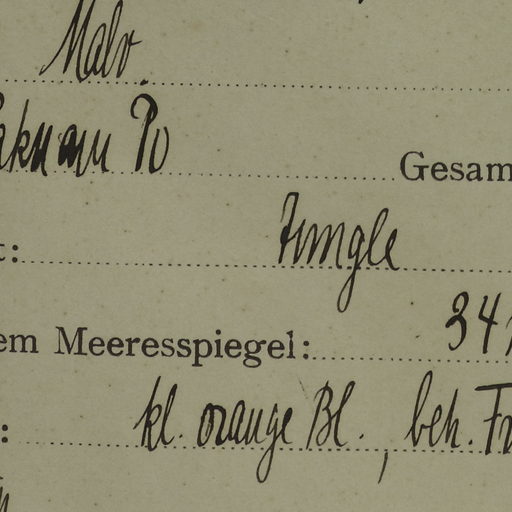 Malv.
Paknam Po Gesam
t: Jungle
em Meeresspiegel: 341
: kl. orange Bl., beh. Fr